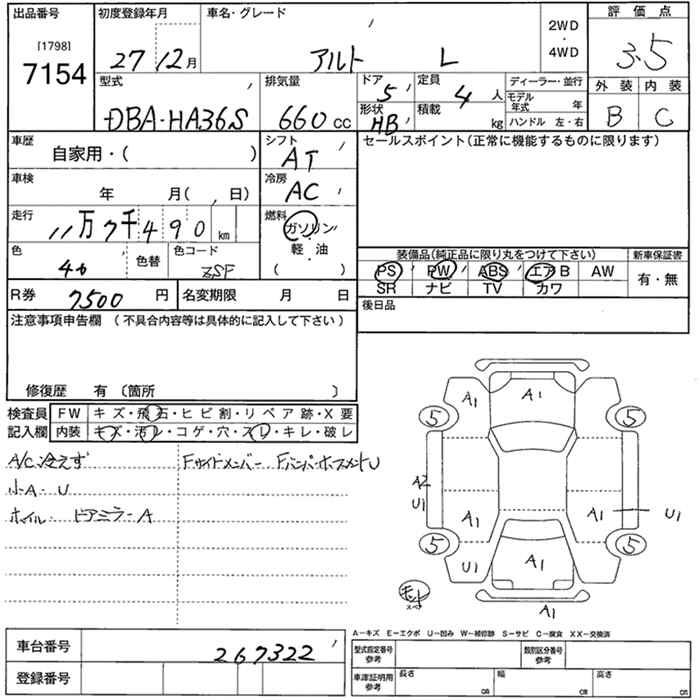 出品番号
[1798]
7154
初度登録年月
27 12月
車名・グレード
アルト L
2WD
・
4WD
評価点
3.5
外装 内装
B C
型式
DBA-HA36S
排気量
660cc
ドア
5
定員
4人
形状
HB
積載
kg
ディーラー・並行
モデル年式 年
ハンドル 左・右
車歴
自家用・( )
シフト
AT
セールスポイント(正常に機能するものに限ります)
車検
年 月( , 日)
冷房
AC
走行
11万7千490km
燃料
ガソリン
軽・油
( )
色
色替
色コード
装備品(純正品に限り丸をつけて下さい)
PS PW ABS エアB AW
SR ナビ TV カワ
新車保証書
有・無
R券 7500円
名変期限 月 日
後日品
注意事項申告欄(不具合内容等は具体的に記入して下さい)
修復歴 有〔箇所 〕
検査員記入欄
FW キズ・飛石・ヒビ割・リペア跡・X要
内装 キズ・汚レ・コゲ・穴・スレ・キレ・破レ
A/C冷えず
Fサイドメンバー Fバンパーホースメント U
小A・U
ホイル・ドアミラーA
A1 A1
5 5
A2
U1
A1 A1 U1
5 5
U1 A1
A1
A−キズ E−エクボ U−凹み W−補修跡 S−サビ C−腐食 XX−交換済
車台番号
267322
登録番号
型式指定番号
参考
類別区分番号
参考
車庫証明用
参考
長さ cm
幅 cm
高さ cm